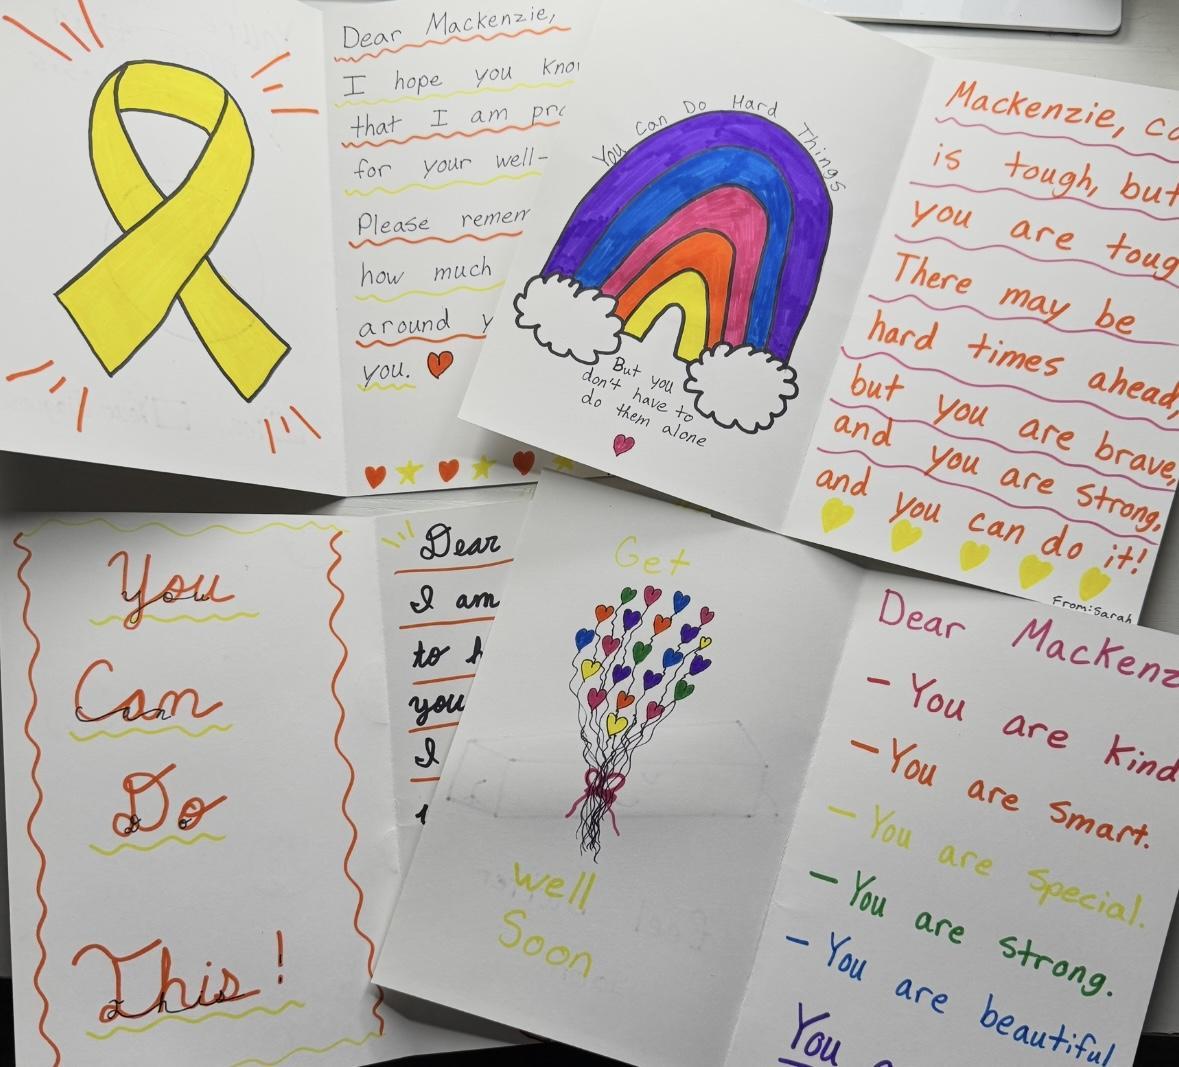 Dear Mackenzie,
I hope you
that I am
for your well-
Please
how much
around
you.
You Can Do Hard Things
But you
don't have to
do them alone
Mackenzie,
is tough, but
you are
There may be
hard times ahead,
but you are brave,
and you are strong,
and you can do it!
From: Sarah
You
Can
Do
This!
Dear
I am
to
you
I
Get
well
Soon
Dear
- You are kind
- You are smart.
- You are special.
- You are strong.
- You are beautiful
You